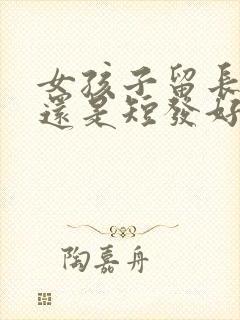 女孩子留長
還是短發好
陶嘉舟